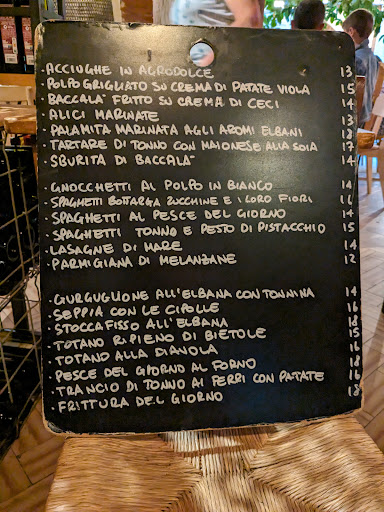 · ACCIUGHE IN AGRODOLCE 13
· POLPO GRIGLIATO SU CREMA DI PATATE VIOLA 15
· BACCALA' FRITTO SU CREMA DI CECI 14
· ALICI MARINATE 13
· PALAMITA MARINATA AGLI AROMI ELBANI 18
· TARTARE DI TONNO CON MAIONESE ALLA SOIA 17
· SBURITA DI BACCALA' 14
· GNOCCHETTI AL POLPO IN BIANCO 14
· SPAGHETTI BOTTARGA ZUCCHINE E I LORO FIORI 16
· SPAGHETTI AL PESCE DEL GIORNO 14
· SPAGHETTI TONNO E PESTO DI PISTACCHIO 15
· LASAGNE DI MARE 14
· PARMIGIANA DI MELANZANE 12
· GURGUGLIONE ALL'ELBANA CON TONNINA 14
· SEPPIA CON LE CIPOLLE 16
· STOCCAFISSO ALL'ELBANA 18
· TOTANO RIPIENO DI BIETOLE 15
· TOTANO ALLA DIAVOLA 16
· PESCE DEL GIORNO AL FORNO 18
· TRANCIO DI TONNO AI FERRI CON PATATE 16
· FRITTURA DEL GIORNO 18